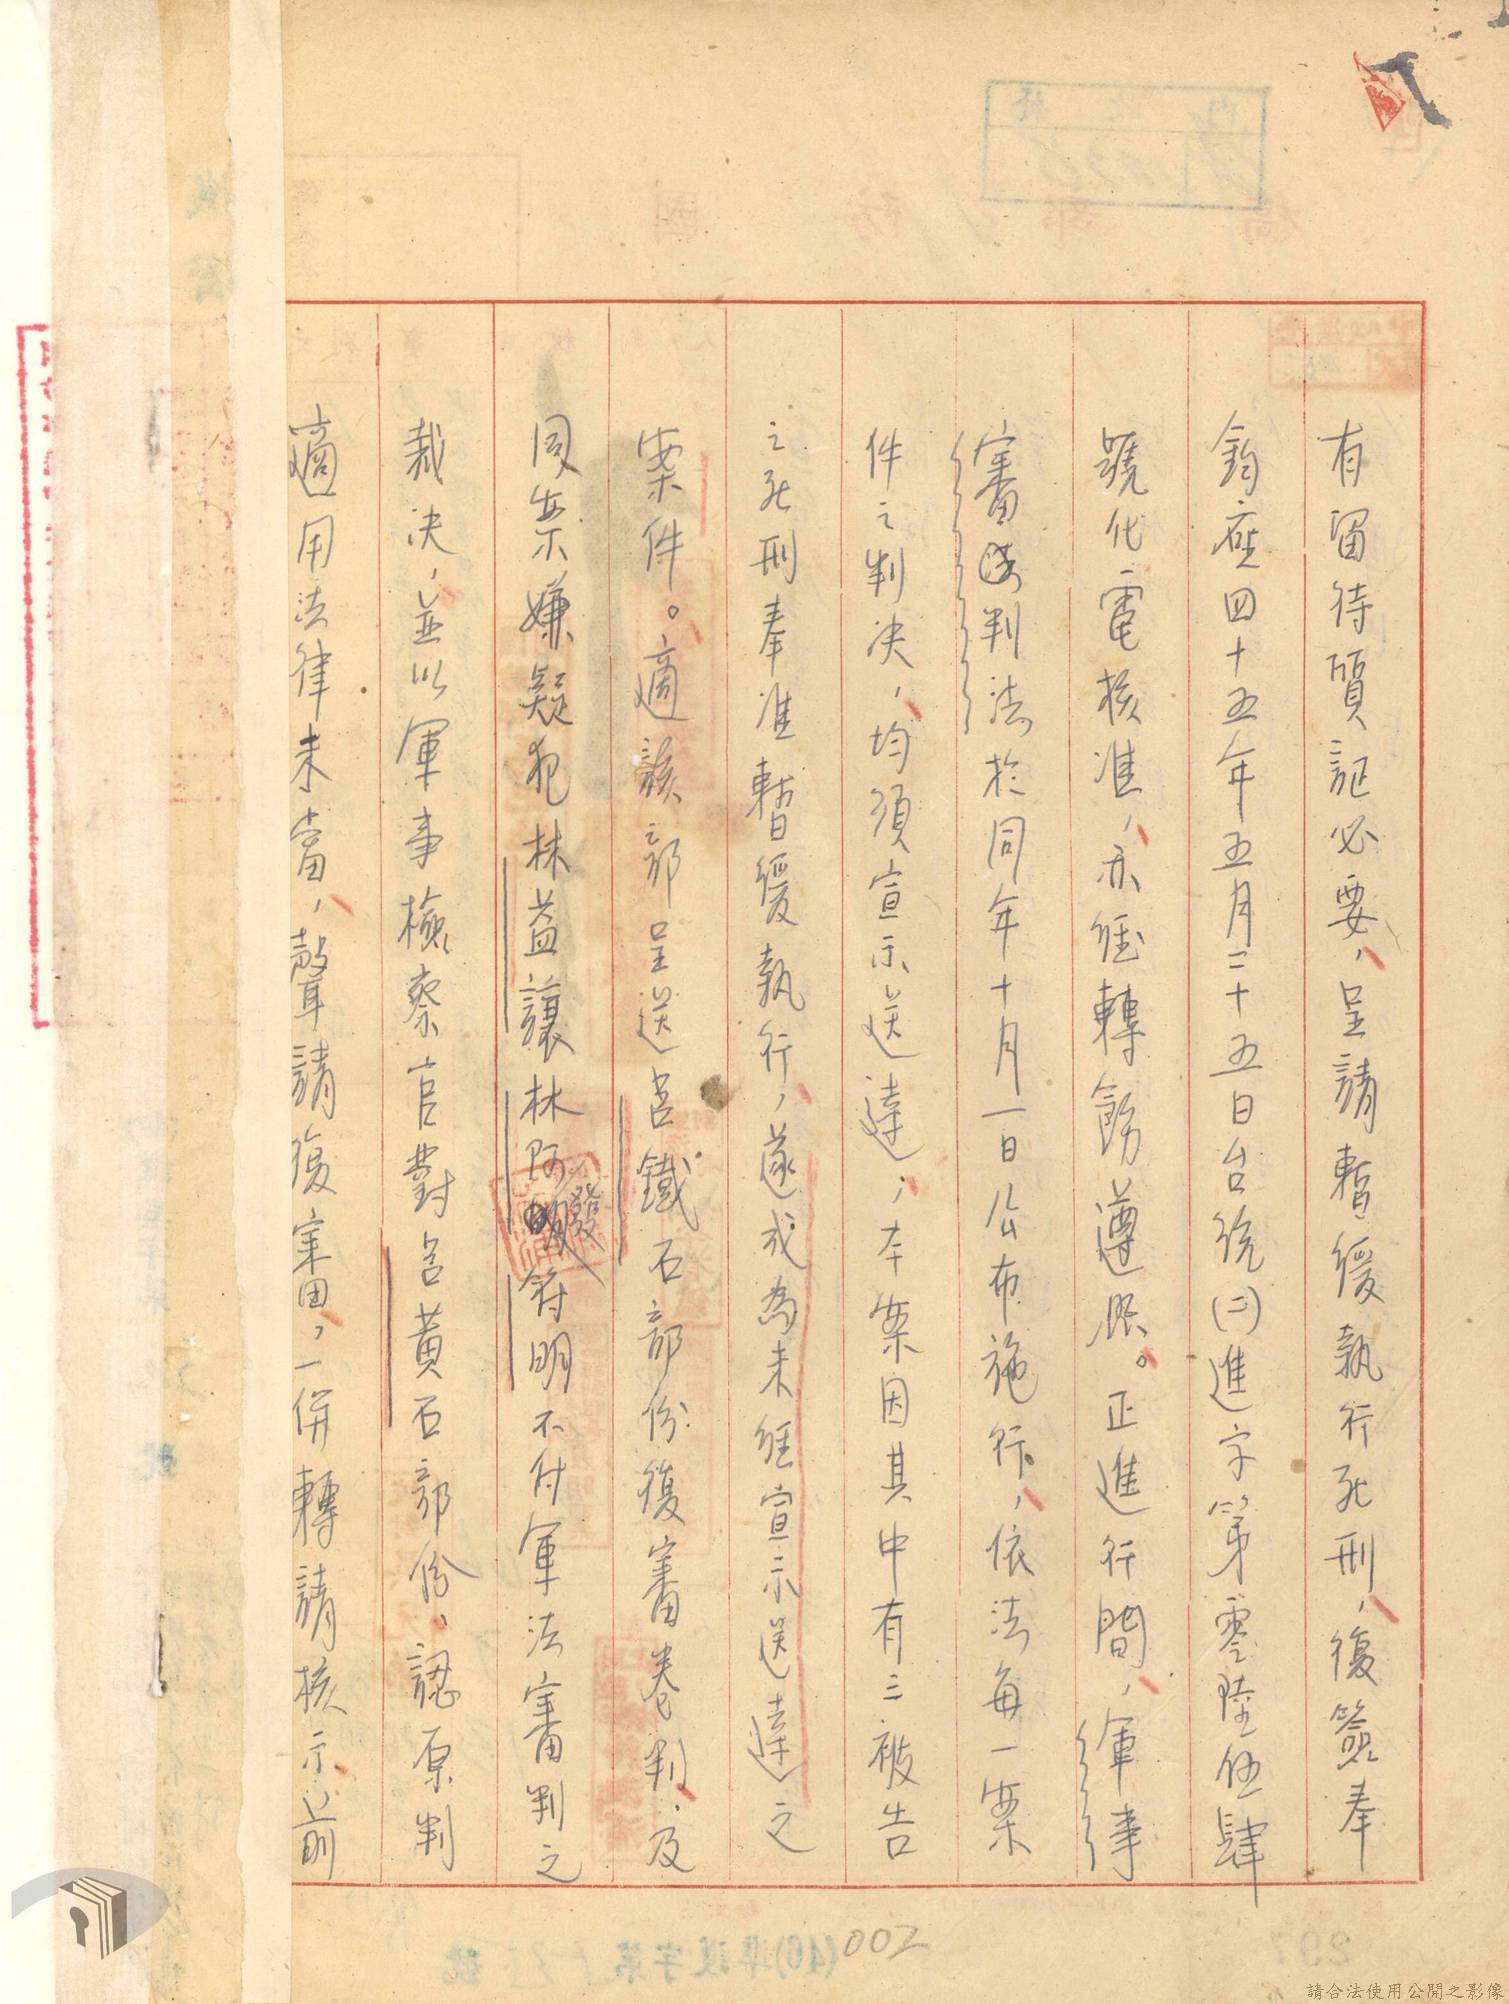 有留待質証必要，呈請暫緩執行死刑，復簽奉
鈞座四十五年五月二十五日台統(二)進字第零陸伍肆
號代電核准，亦經轉飭遵照。正進行間，軍事
審判法於同年十月一日公布施行，依法每一案
件之判決，均須宣示送達，本案因其中有三被告
之死刑奉准暫緩執行，遂成為未經宣示送達之
案件。適該部呈送呂鐵石部份復審卷判，及
同案嫌疑犯林益讓林阿發符明不付軍法審判之
裁決，並以軍事檢察官對呂黃石部份，認原判
適用法律未當，聲請復審，一併轉請核示前
002
請合法使用公開之影像